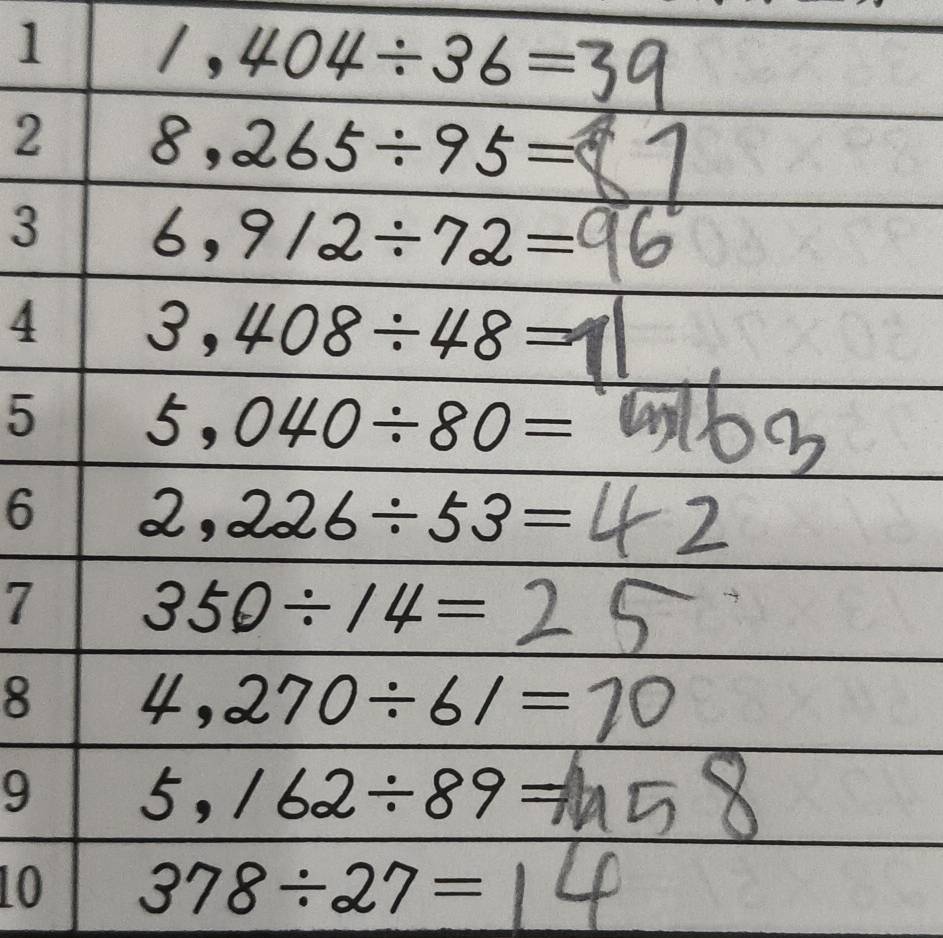 1 1,404÷36=39
2 8,265÷95=87
3 6,912÷72=96
4 3,408÷48=71
5 5,040÷80=63
6 2,226÷53=42
7 350÷14=25
8 4,270÷61=70
9 5,162÷89=58
10 378÷27=14